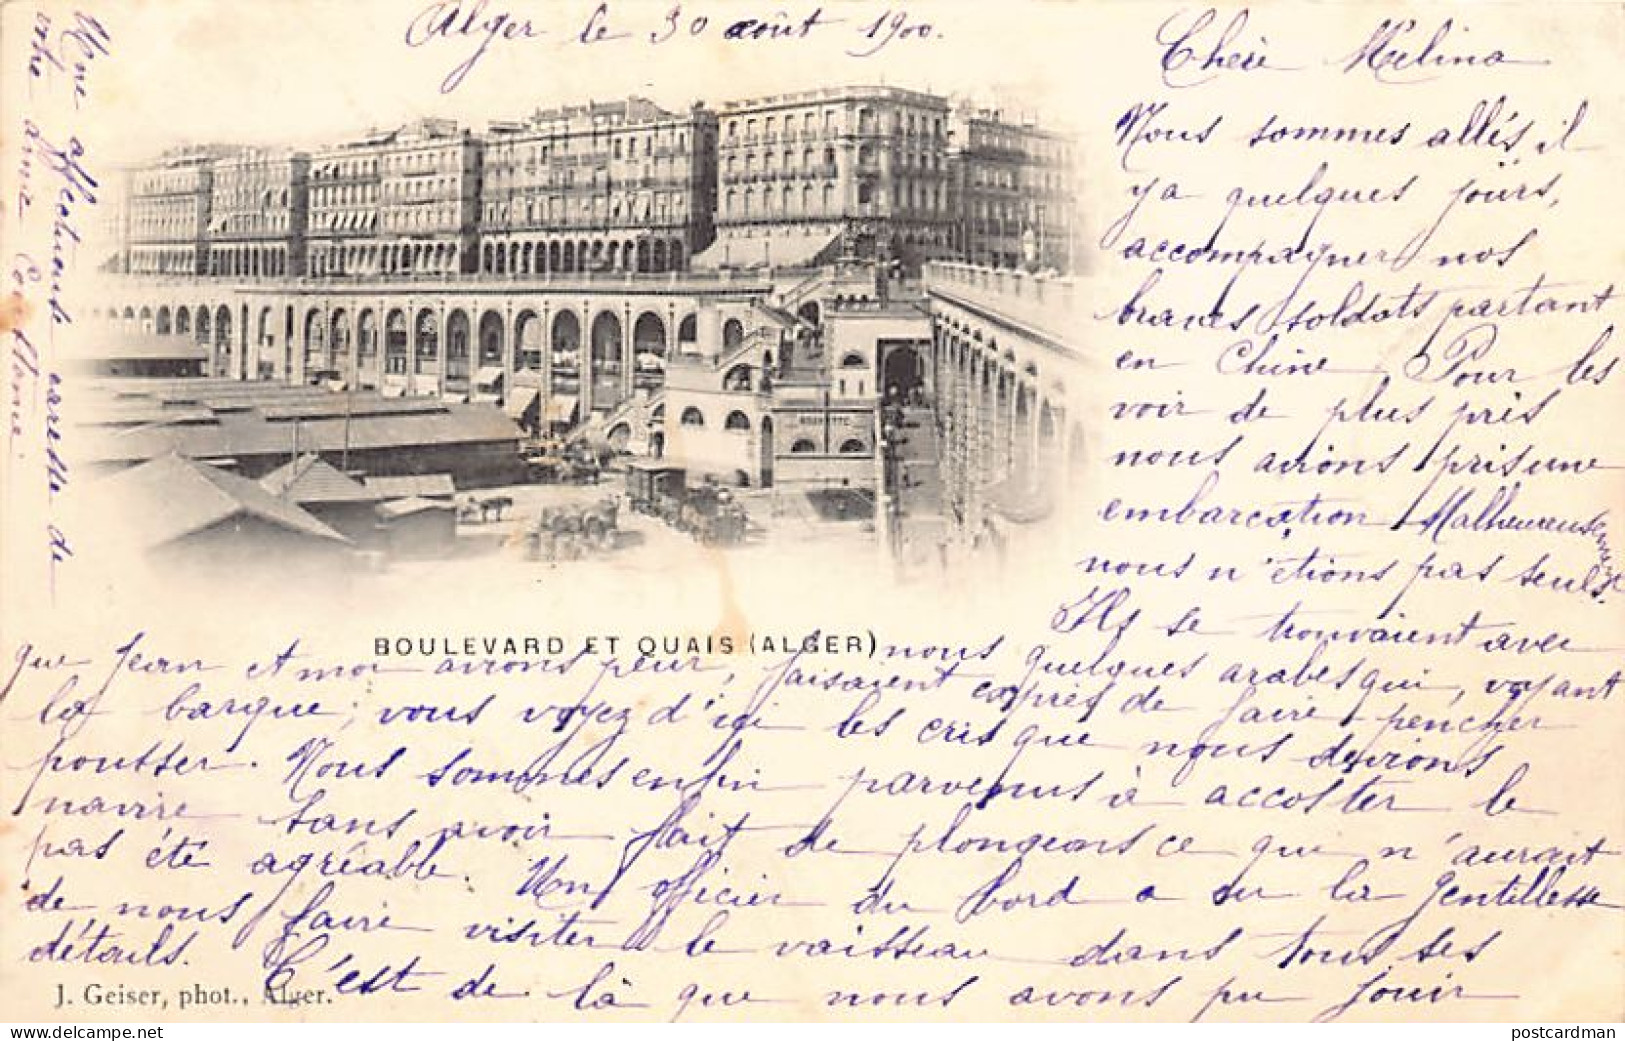 Alger le 30 août 1900.
Chère Mélina
Nous sommes allés, il
y a quelques jours,
accompagner nos
braves soldats partant
en Chine. Pour les
voir de plus près
nous avions pris une
embarcation. Malheureusement
nous n'étions pas seuls.
Ils se trouvaient avec
BOULEVARD ET QUAIS (ALGER)
nous quelques arabes qui, voyant
que Jean et moi avions peur, faisaient exprès de faire pencher
la barque; vous voyez d'ici les cris que nous devions
pousser. Nous sommes enfin parvenus à accoster le
navire sans avoir fait de plongeons ce qui n'aurait
pas été agréable. Un officier du bord a eu la gentillesse
de nous faire visiter le vaisseau dans tous ses
détails. C'est de là que nous avons pu jouir
J. Geiser, phot., Alger.
Une affectueuse caresse de
votre amie
postcardman